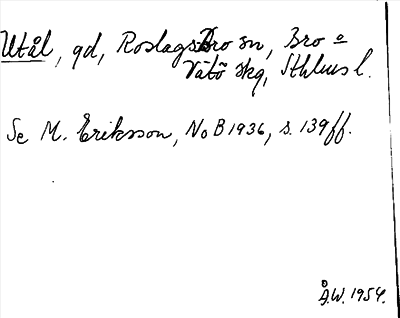 Utål, gd, Roslags-Bro sn, Bro o
Vätö skg, Sthlms l.
Se M. Eriksson, NoB 1936, s. 139ff.
Å.W. 1954.